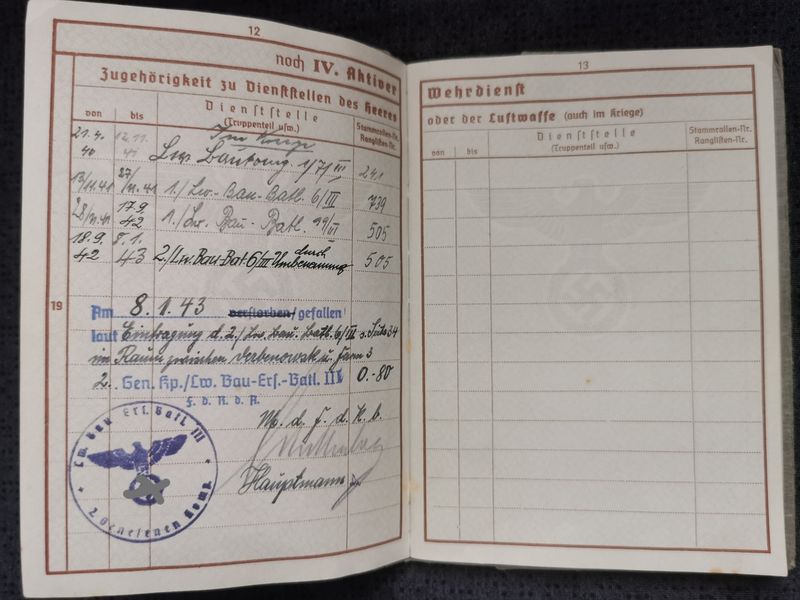 12
noch IV. Aktiver
Zugehörigkeit zu Dienststellen des Heeres
von bis Dienststelle (Truppenteil usw.) Stammrollen-Nr. Ranglisten-Nr.
21.4. 40 12.11. 41 Lw. Baukomp. 1/71 III 241
13/11.41 27/11.41 1./Lw.-Bau-Batl. 6/III 739
28/11.41 17.9. 42 1./Lw. Bau-Batl. 505
18.9. 42 8.1. 43 2./Lw. Bau-Bat 6/III durch Umbenennung 505
19
Am 8.1.43 verstorben/gefallen
laut Eintragung d. 2./Lw. Bau. Batl. 6/III s. Seite 34
im Raum zwischen u. Farm 3
2. Gen. Kp./Lw. Bau-Ers.-Batl. III O.-80
F. d. R. d. A.
M. d. F. d. K. b.
Hauptmann
Lw. Bau Ers. Batl. III
2. Genesenen Komp.
13
Wehrdienst
oder der Luftwaffe (auch im Kriege)
von bis Dienststelle (Truppenteil usw.) Stammrollen-Nr. Ranglisten-Nr.